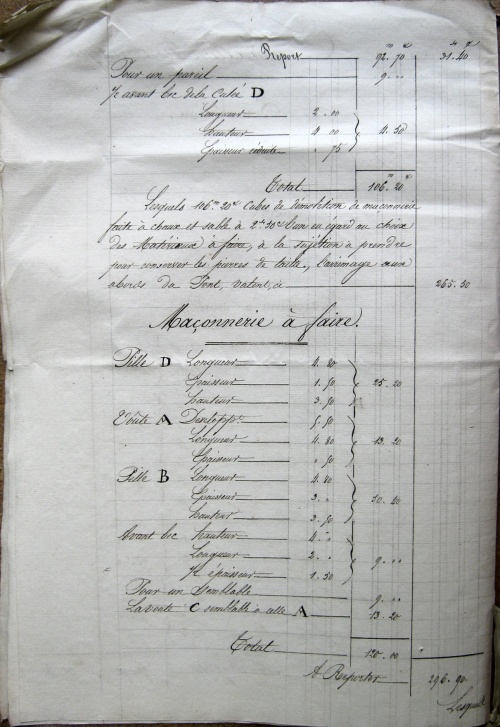 Report 92.70 31.40
Pour un pareil 9. "
Je avant bec de la Culée D
Longueur 2.00
hauteur 4.00 4.50
Epaisseur réduite ".75
Total 106.20
Lesquels 106m20c Cubes de démolition de maçonnerie
faite à chaux et sable à 2f50c l'un eu égard au choix
des Matériaux à faire, à la sujétion à prendre
pour conserver les pierres de taille, l'arrimage aux
abords du Pont, valent, à 265.50
Maçonnerie à faire.
Pille D Longueur 4.80
Epaisseur 1.50 25.20
hauteur 3.50
Voûte A Développt. 5.50
Longueur 4.80 13.20
Epaisseur ".50
Pille B Longueur 4.80
Epaisseur 3. " 50.20
hauteur 3.50
Avant bec hauteur 4. "
Longueur 2. " 9. "
Je épaisseur 1.50
Pour un Semblable 9. "
La voûte C semblable à celle A 13.20
Total 120.00
A Reporter 296.90
Lesquels